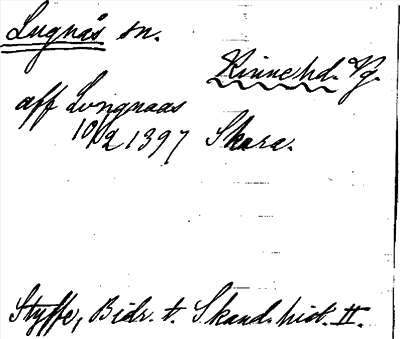 Lugnås sn.
Kinne hd. Vg.
aff Longnaas
10/2 1397 Skara.
Styffe, Bidr. t. Skand. hist. II.